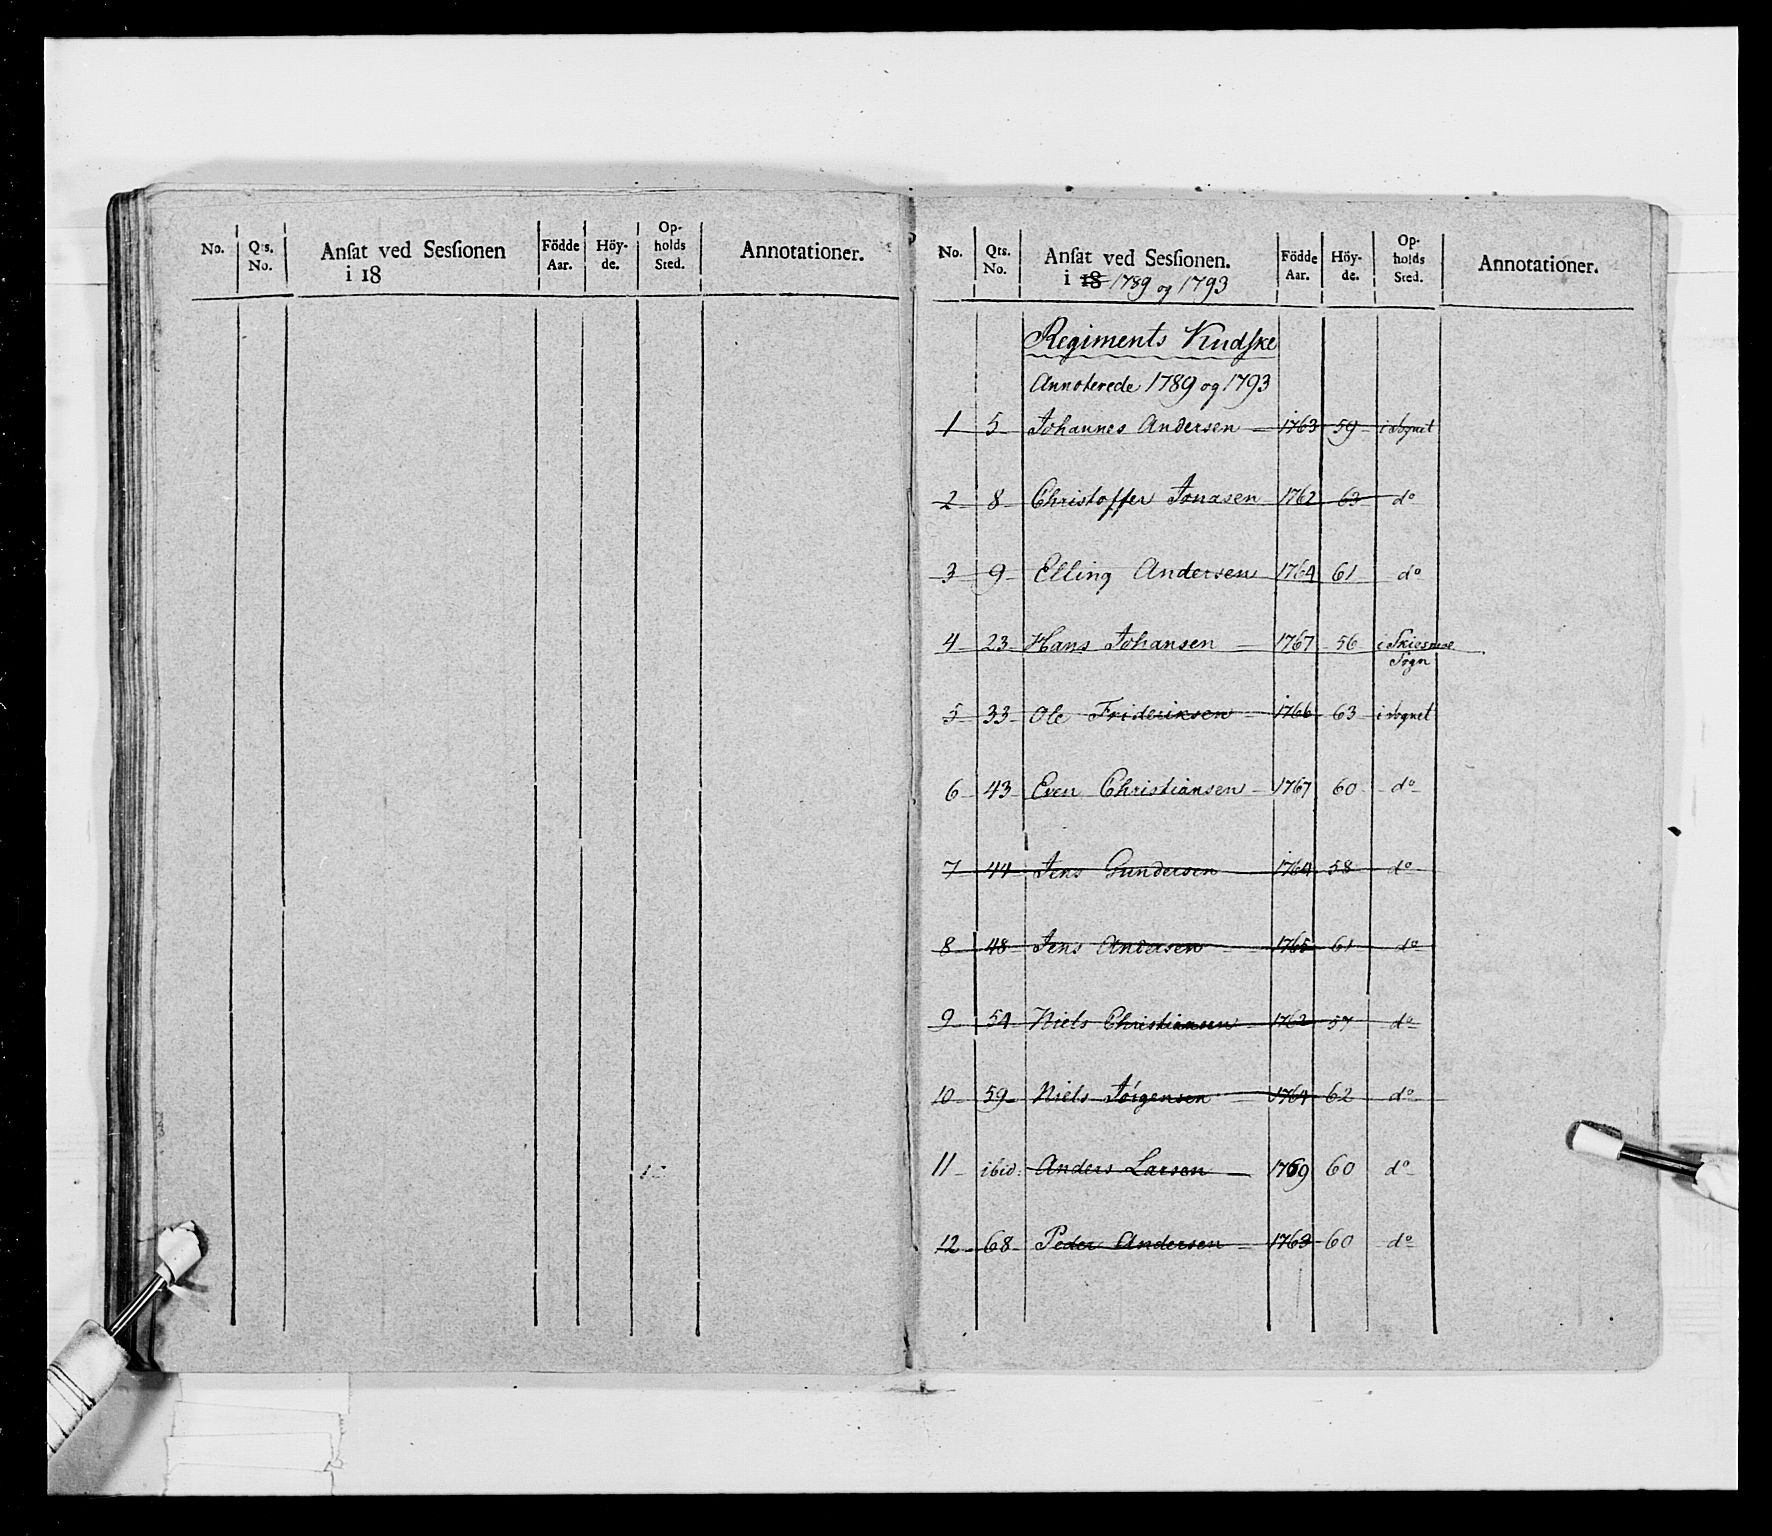 No. Qts. No. Ansat ved Sessionen i 18 Födde Aar. Höy-de. Op-holds Sted. Annotationer.
No. Qts. No. Ansat ved Sessionen. i 18 1789 og 1793 Födde Aar. Höy-de. Op-holds Sted. Annotationer.
Regiments Kudske
Annoterede 1789 og 1793
1 5 Johannes Andersen 1763 59 i Sognet
2 8 Christoffer Jonasen 1762 63 do
3 9 Elling Andersen 1764 61 do
4 23 Hans Johansen 1767 56 i
Sogn
5 33 Ole Frideriksen 1766 63 i Sognet
6 43 Even Christiansen 1767 60 do
7 44 Jens Gundersen 1764 58 do
8 48 Jens Andersen 1765 61 do
9 54 Niels Christiansen 1762 57 do
10 59 Niels Jörgensen 1764 62 do
11 ibid: Anders Larsen 1769 60 do
12 68 Peder Andersen 1763 60 do